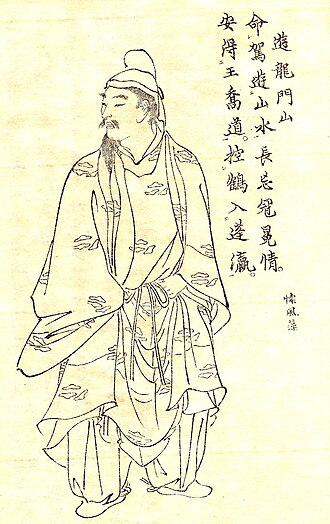 遊龍門山
命駕遊山水長忘冠冕情
安得王喬道控鶴入蓬瀛
懐風藻